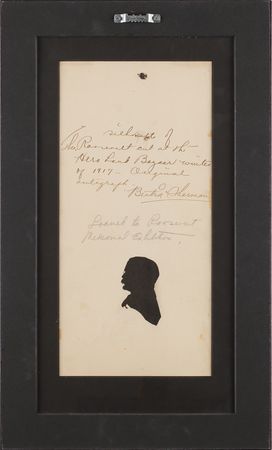 silhouette of
Th. Roosevelt cut at the
Hero Land Bazaar winter
of 1917 - Original
autograph
Beatrix Sherman
Loaned to Roosevelt
Memorial Exhibition.